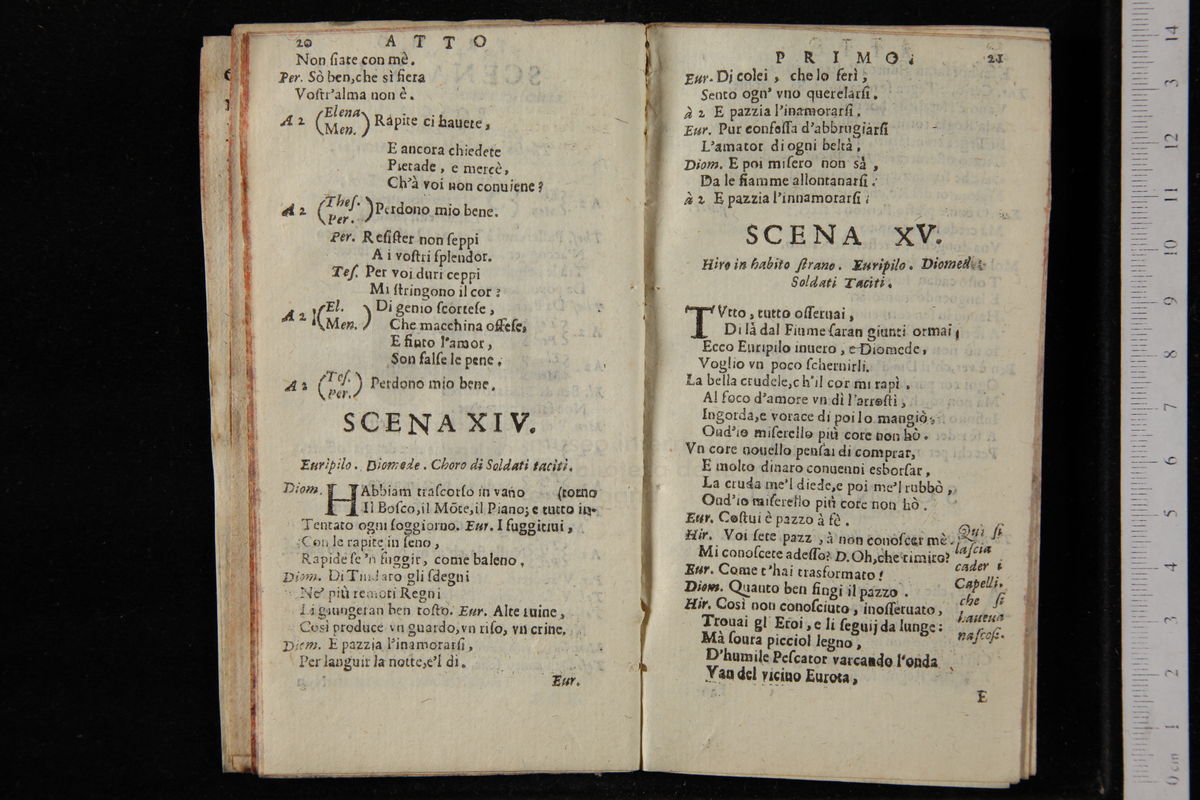 20 ATTO
Non ſiate con mè.
Per. Sò ben,che sì fiera
Voſtr'alma non è.
A 2 (Elena Men.) Rapite ci hauete,
E ancora chiedete
Pietade, e mercè,
Ch'à voi non conuiene?
A 2 (Theſ. Per.) Perdono mio bene.
Per. Reſiſter non ſeppi
A i voſtri ſplendor.
Teſ. Per voi duri ceppi
Mi ſtringono il cor:
A 2 (El. Men.) Di genio ſcorteſe,
Che macchina offeſe,
E finto l'amor,
Son falſe le pene.
A 2 (Teſ. Per.) Perdono mio bene.
SCENA XIV.
Euripilo. Diomede. Choro di Soldati taciti.
Diom. HAbbiam traſcorſo in vano (torno
Il Boſco,il Mōte,il Piano; e tutto in-
Tentato ogni ſoggiorno. Eur. I fuggitiui,
Con le rapite in ſeno,
Rapide ſe 'n fuggir, come baleno.
Diom. Di Tindaro gli ſdegni
Ne' più remoti Regni
Li giungeran ben toſto. Eur. Alte ruine,
Così produce vn guardo,vn riſo, vn crine.
Diom. E pazzia l'inamorarſi,
Per languir la notte,e'l dì.
Eur.
PRIMO. 21
Eur. Di colei, che lo ferì,
Sento ogn' vno querelarſi.
à 2 E pazzia l'inamorarſi.
Eur. Pur confeſſa d'abbrugiarſi
L'amator di ogni beltà.
Diom. E poi miſero non sà,
Da le fiamme allontanarſi.
à 2 E pazzia l'innamorarſi:
SCENA XV.
Hiro in habito ſtrano. Euripilo. Diomed
Soldati Taciti.
TVtto, tutto oſſeruai,
Di là dal Fiume ſaran giunti ormai,
Ecco Euripilo inuero, e Diomede,
Voglio vn poco ſchernirli.
La bella crudele,ch'il cor mi rapì,
Al foco d'amore vn dì l'arroſtì,
Ingorda,e vorace di poi lo mangiò,
Ond'io miſerello più core non hò.
Vn core nouello penſai di comprar,
E molto dinaro conuenni esborſar,
La cruda me'l diede,e poi me'l rubbò,
Ond'io miſerello più core non hò.
Eur. Coſtui è pazzo à fè.
Hir. Voi ſete pazz, à non conoſcer mè. Quì ſi
Mi conoſcete adeſſo? D. Oh,che rimiro? laſcia
Eur. Come t'hai trasformato! cader i
Diom. Quanto ben fingi il pazzo. Capelli,
Hir. Così non conoſciuto, inoſſeruato, che ſi
Trouai gl' Eroi, e li ſeguij da lunge: haueua
Mà ſoura picciol legno, naſcoſi.
D'humile Peſcator varcando l'onda
Van del vicino Eurota,
E